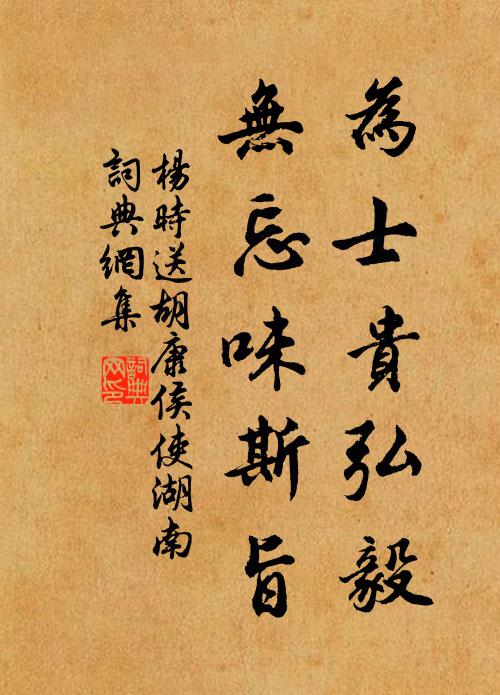 為士貴弘毅
無忘味斯旨
楊時送胡康侯使湖南
詞典網集
詞典
网印